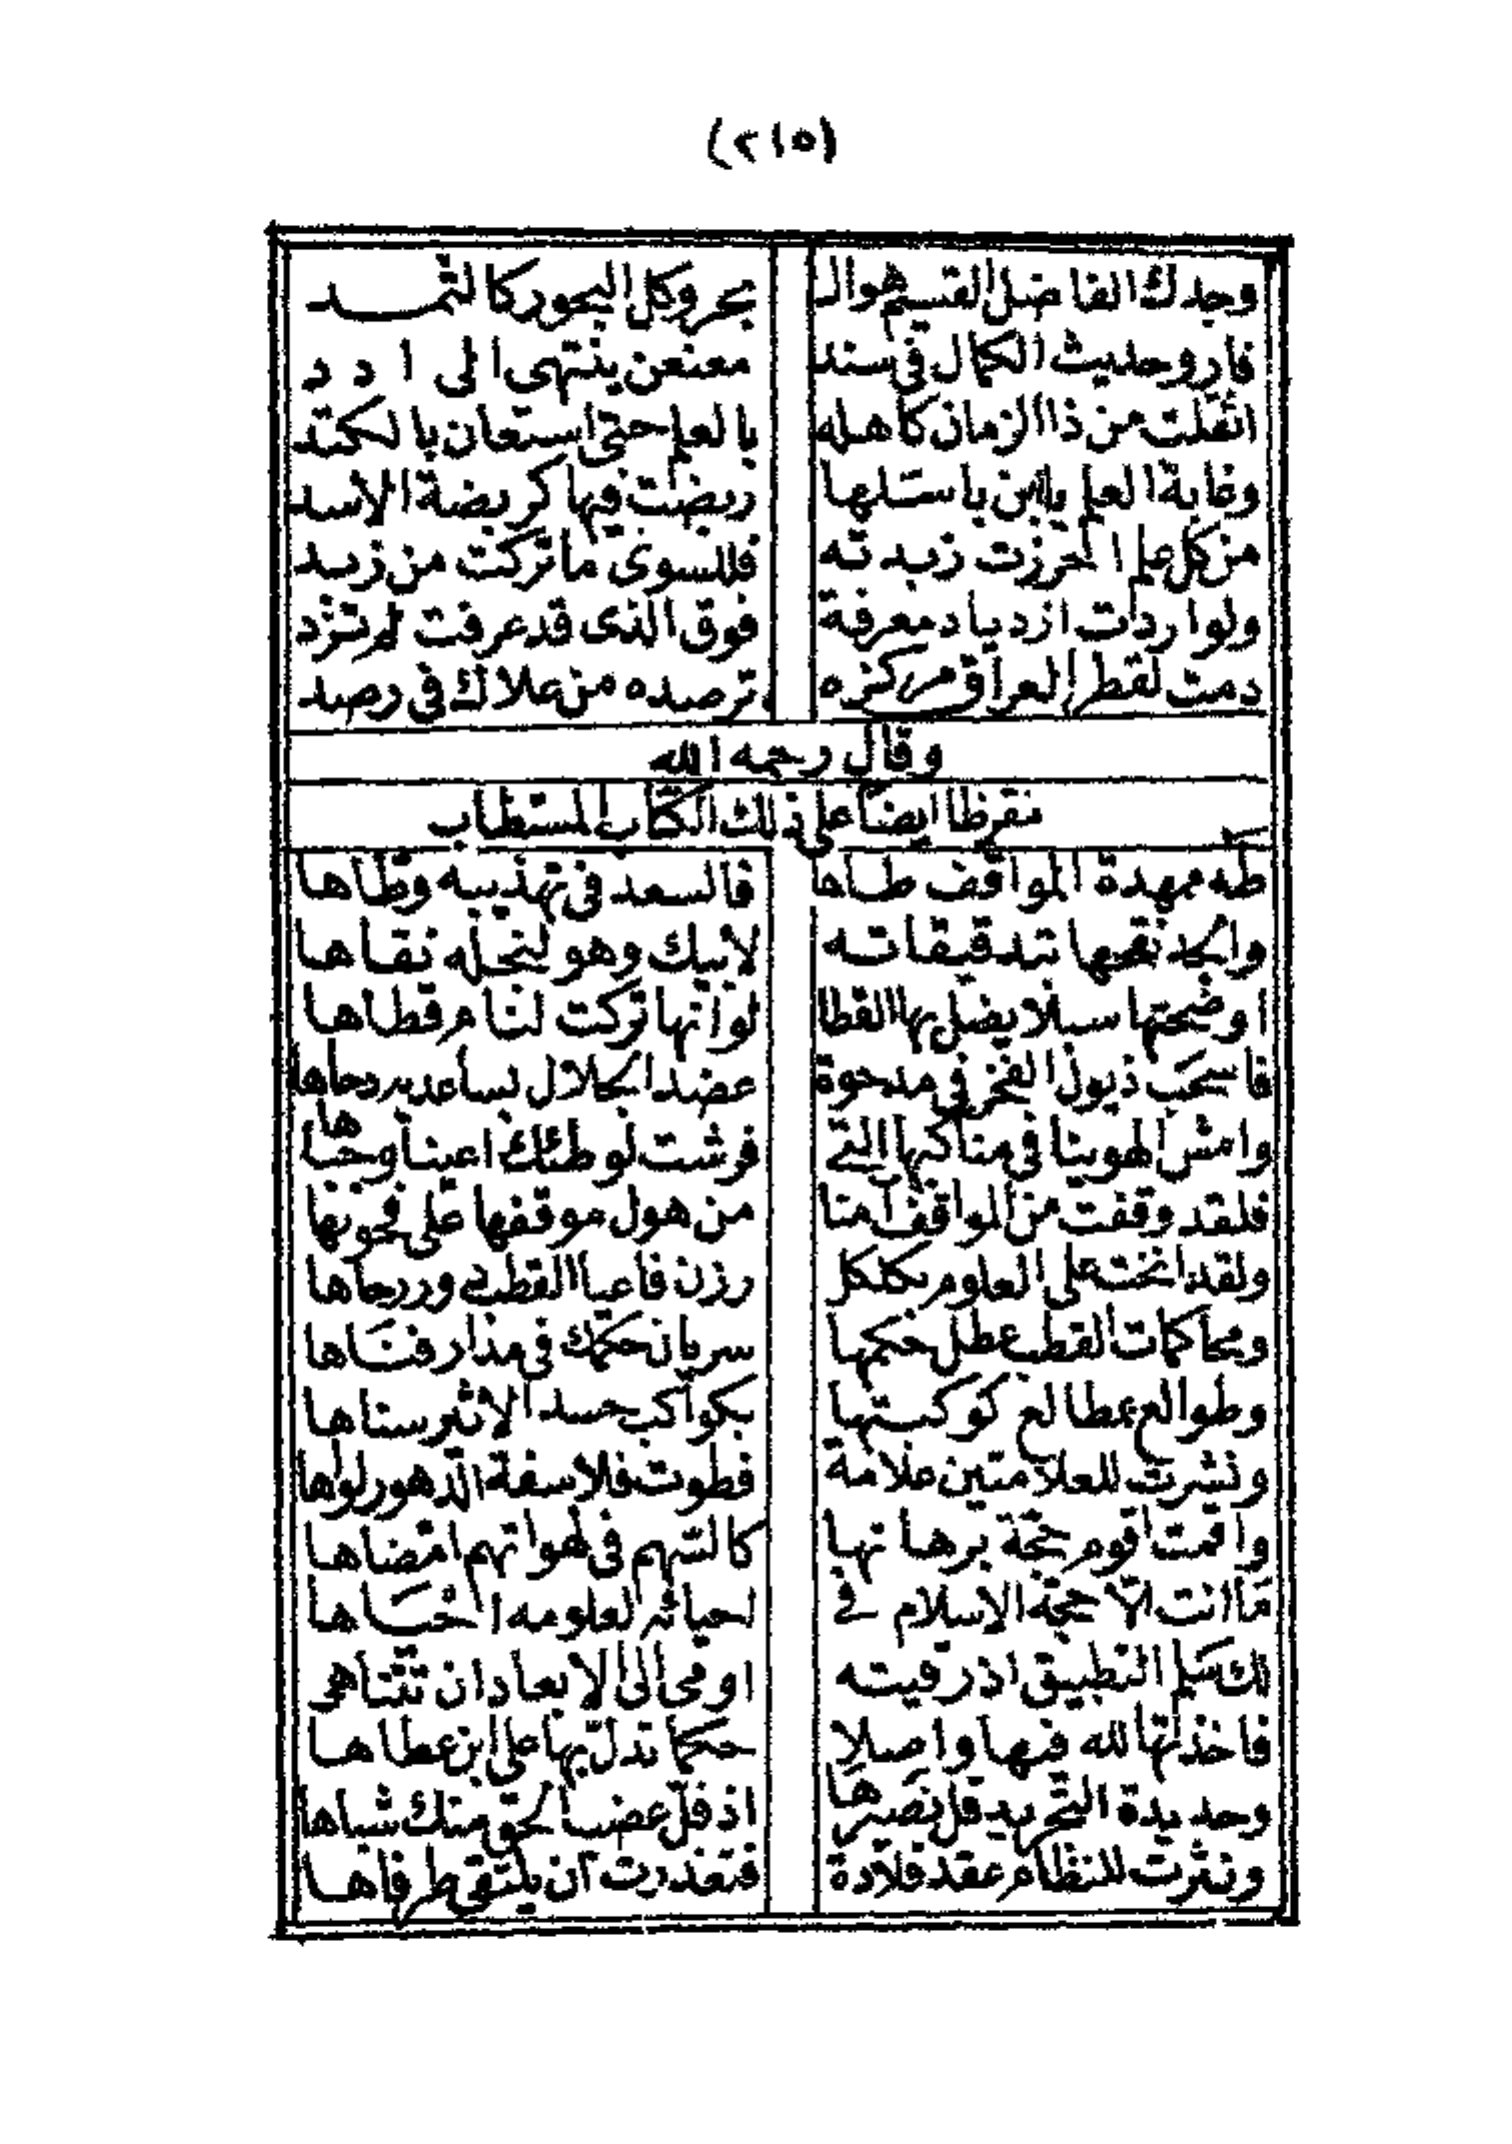 (٢١٥)
وجدك الفاضل القسيم هوال بحر وكل البحور كالثمد
فارو حديث الكمال في سند معنعن ينتهى الى ادد
اثقلت من ذا الزمان كاهله بالعلم حتى استعان بالكتد
وغابة العلم يابن باسلها ربضت فيها كربضة الاسد
من كل علم احرزت زبدته فللسوى ما تركت من زبد
ولو اردت ازدياد معرفة فوق الذى قد عرفت لم تزد
دمت لقطر العراق مركزه ترصده من علاك في رصد
وقال رحمه الله
مقرظا ايضا على ذلك الكتاب المستطاب
طه ممهدة المواقف طاها فالسعد في تهذيبه وطاها
والجد نقحها تدقيقاته لابيك وهو لنجله نقاها
اوضحتها سبلا يضل بها القطا لو انها تركت لنام قطاها
فاسحب ذيول الفخر في مدحوة عضد الجلال بساعديه دحاها
وامش الهوينا في مناكبها التي فرشت لوطئك اعينا وجباها
فلقد وقفت من المواقف آمنا من هول موقفها على فحونها
ولقد انخت على العلوم بكلكل رزن فاعيا القطب دوررحاها
ومحاكمات القطب عطل حكمها سريان حكمك في مدار فناها
وطوالع بمطالع كوكبتها بكواكب حسد الاثير سناها
ونشرت للعلامتين علامة فطوت فلاسفة الدهور لواها
واقمت اقوم حجة برهانها كالسهم في لهواتهم امضاها
ما انت الا حجة الاسلام في احيائه لعلومه احياها
لك سلم التطبيق اذ رقيته اومى الى الابعاد ان تتناهى
فاخذتها لله فيها واصلا حكما تدل بها على ابن عطاها
وحديدة التجريد قل نصيرها اذ فل عضب الحق منك شباها
ونثرت للنظام عقد قلادة فتعذرت ان يلتقى طرفاها